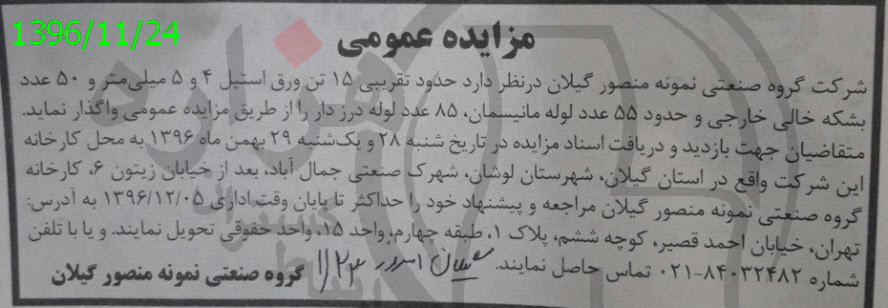 1396/11/24
مزایده عمومی
شرکت گروه صنعتی نمونه منصور گیلان درنظر دارد حدود تقریبی ۱۵ تن ورق استیل ۴ و ۵ میلی‌متر و ۵۰ عدد
بشکه خالی خارجی و حدود ۵۵ عدد لوله مانیسمان، ۸۵ عدد لوله درز دار را از طریق مزایده عمومی واگذار نماید.
متقاضیان جهت بازدید و دریافت اسناد مزایده در تاریخ شنبه ۲۸ و یک‌شنبه ۲۹ بهمن ماه ۱۳۹۶ به محل کارخانه
این شرکت واقع در استان گیلان، شهرستان لوشان، شهرک صنعتی جمال آباد، بعد از خیابان زیتون ۶، کارخانه
گروه صنعتی نمونه منصور گیلان مراجعه و پیشنهاد خود را حداکثر تا پایان وقت اداری ۱۳۹۶/۱۲/۰۵ به آدرس:
تهران، خیابان احمد قصیر، کوچه ششم، پلاک ۱، طبقه چهارم، واحد ۱۵، واحد حقوقی تحویل نمایند. و یا با تلفن
شماره ۸۴۰۳۲۴۸۲-۰۲۱ تماس حاصل نمایند. گیلان امروز ۱۱/۲۳
گروه صنعتی نمونه منصور گیلان